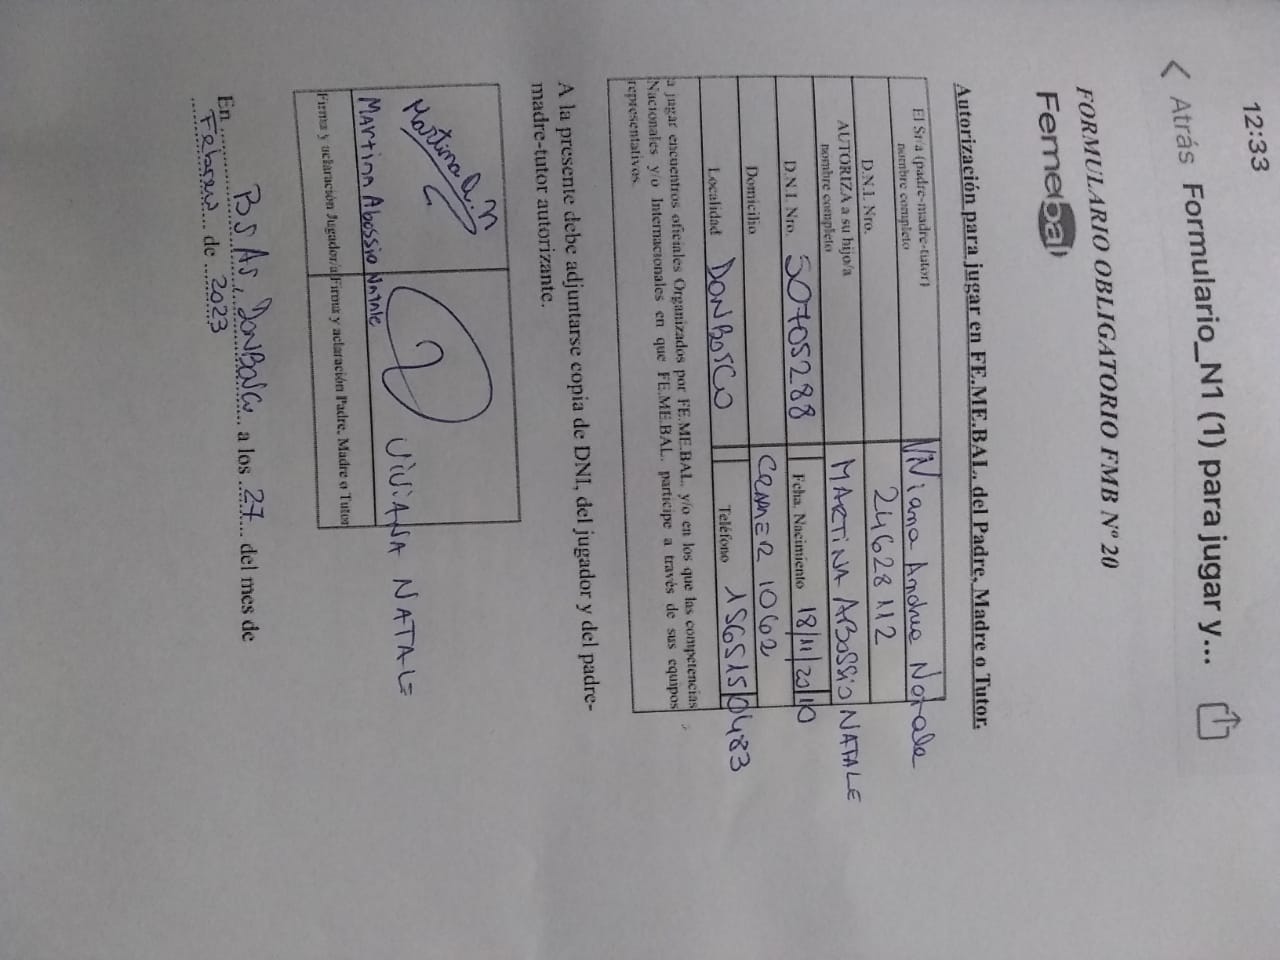 12:33
Atrás Formulario_N1 (1) para jugar y...
FORMULARIO OBLIGATORIO FMB Nº 20
Femebal
Autorización para jugar en FE.ME.BAL. del Padre, Madre o Tutor.
El Sr/a (padre-madre-tutor) nombre completo Viviana Andrea Natale
D.N.I. Nro. 24628112
AUTORIZA a su hijo/a nombre completo MARTINA ABOSSIO NATALE
D.N.I. Nro. 50705288 Fcha. Nacimiento 18/11/2010
Domicilio 1062
Localidad DON BOSCO Teléfono 1565150483
a jugar encuentros oficiales Organizados por FE.ME.BAL. y/o en los que las competencias
Nacionales y/o Internacionales en que FE.ME.BAL. participe a través de sus equipos
representativos.
A la presente debe adjuntarse copia de DNI, del jugador y del padre-
madre-tutor autorizante.
Martina
MARTINA Abossio NATALE VIVIANA NATALE
Firma y aclaración Jugador/a Firma y aclaración Padre, Madre o Tutor
En BS AS, DON BOSCO a los 27 del mes de
Febrero de 2023